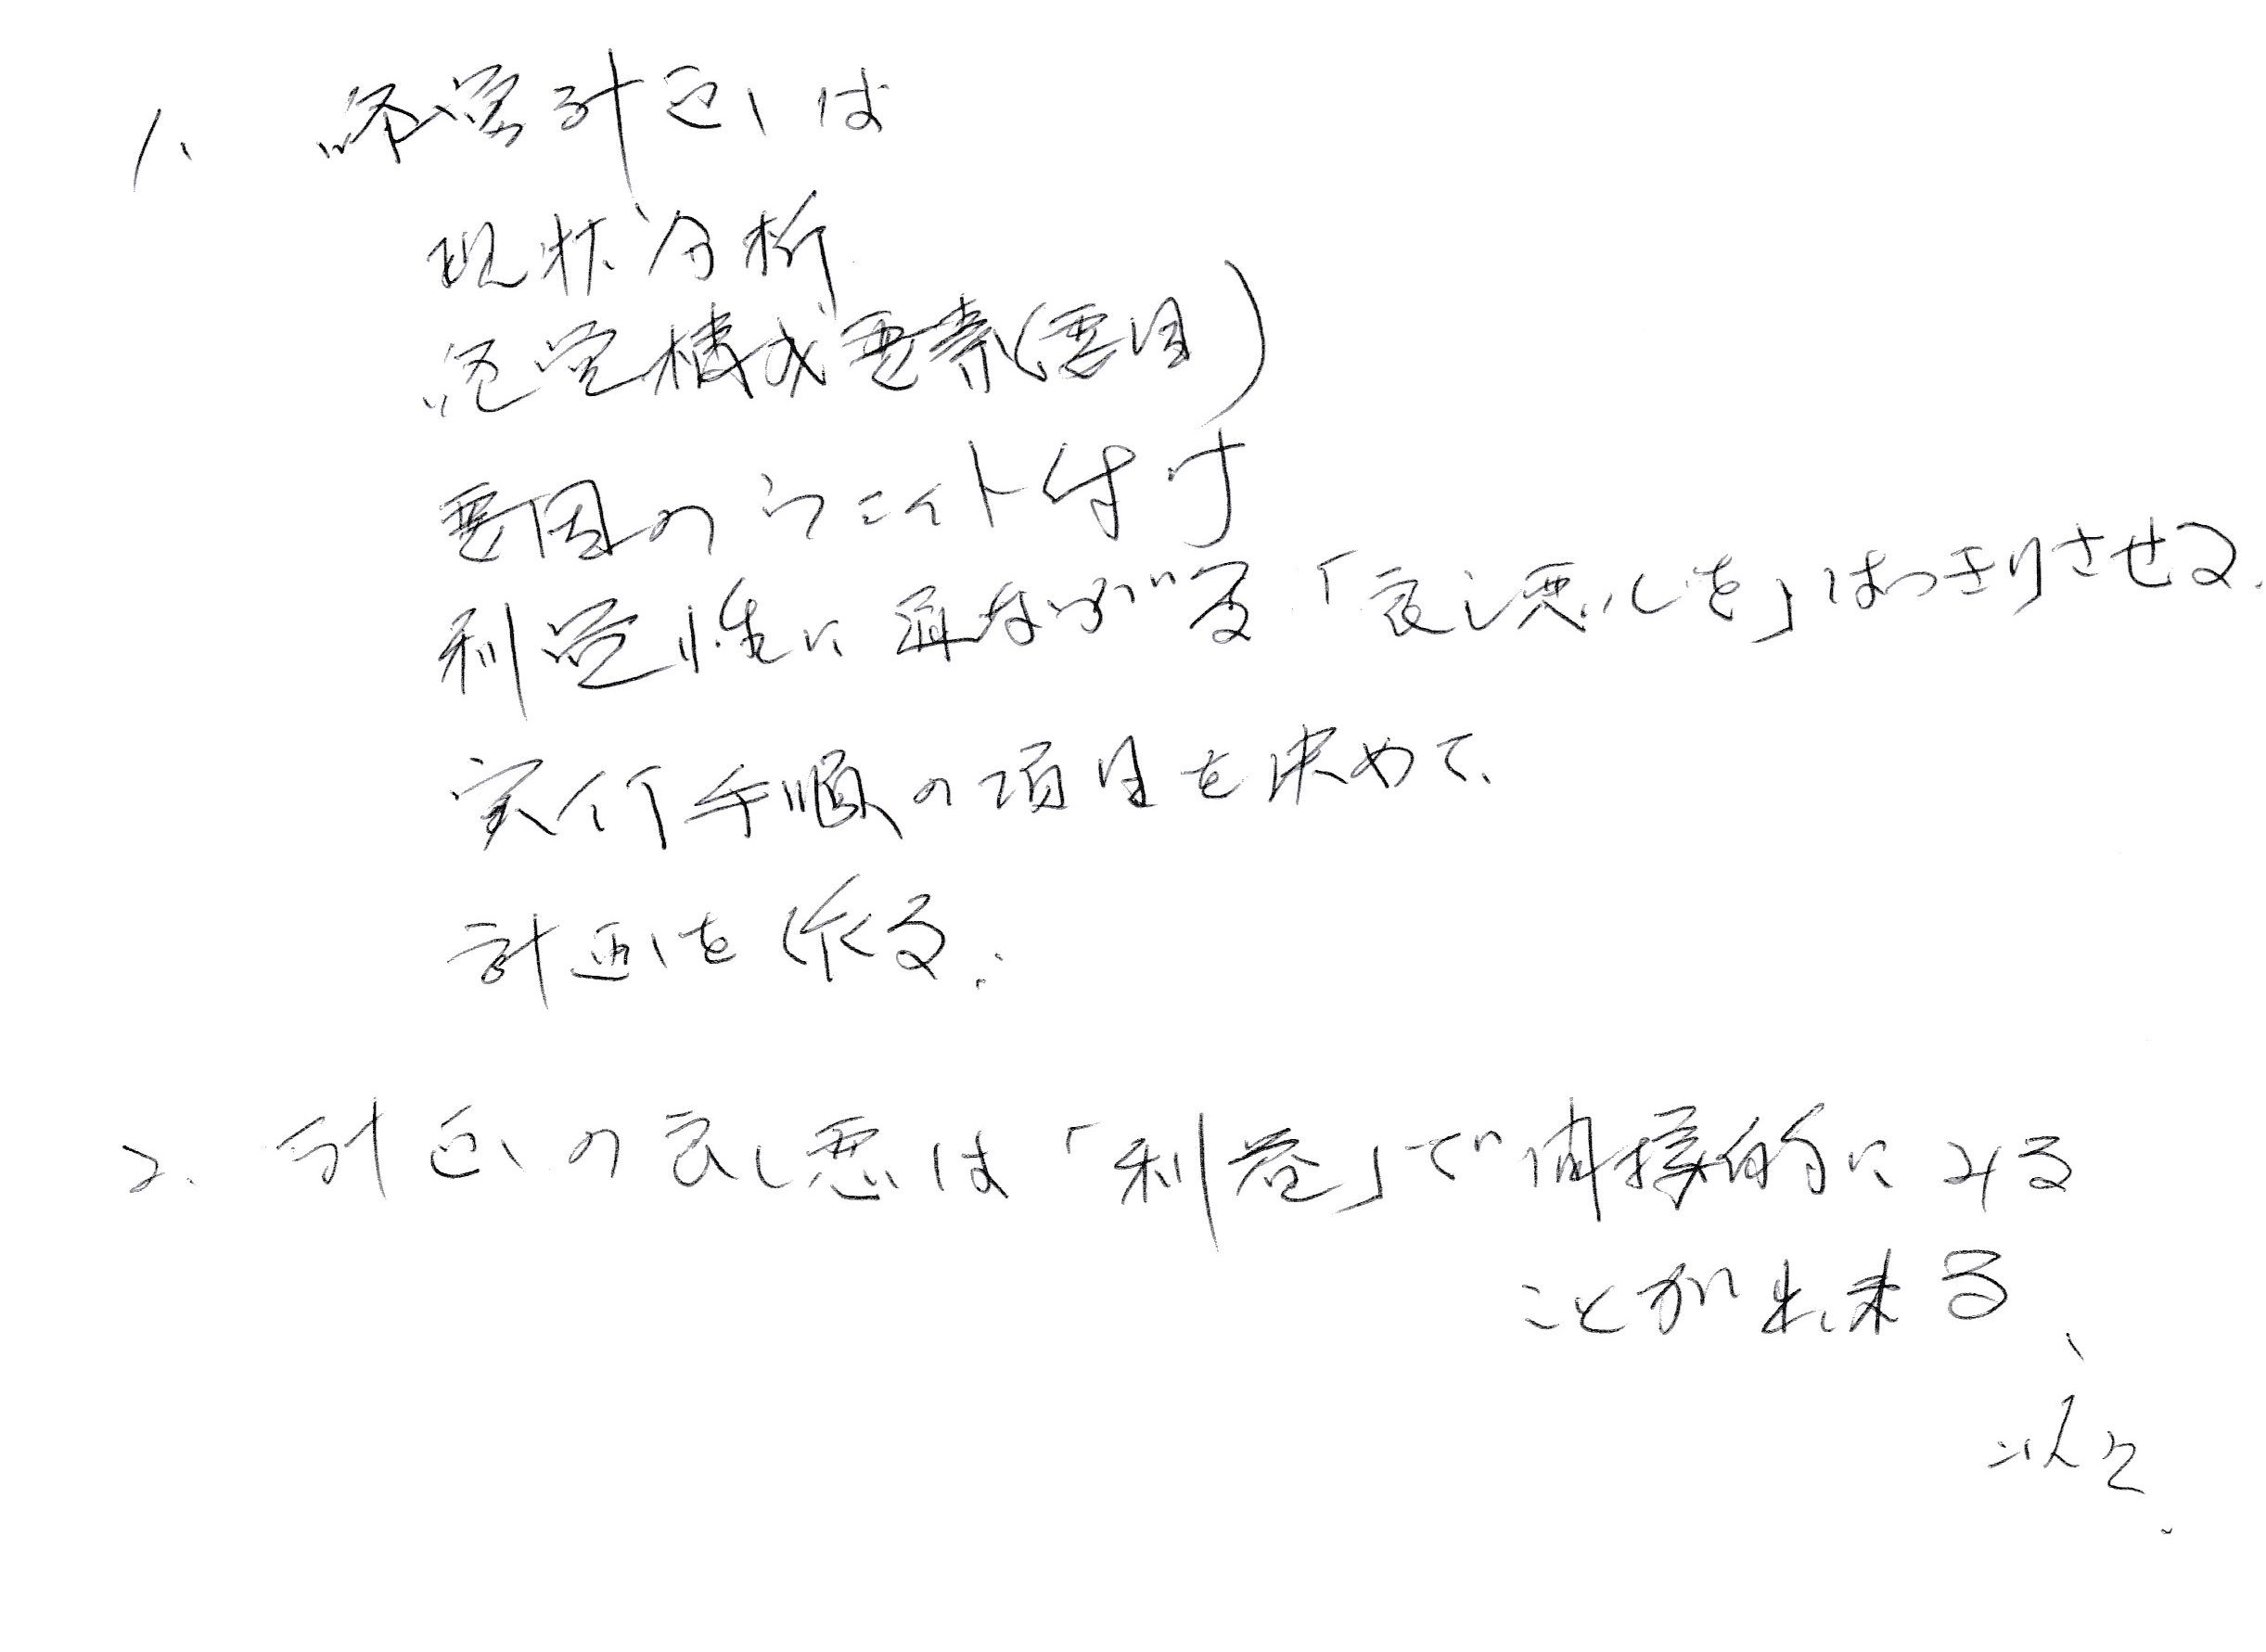 1. 経営計画は
現状分析
経営構成要素(要因)
要因のウェイト付け
利益性に繋ながる「良し悪しを」はっきりさせる.
実行手順の項目を決めて、
計画を作る.
2. 計画の良し悪は「利益」で 的にみる
ことが出来る、
以上.